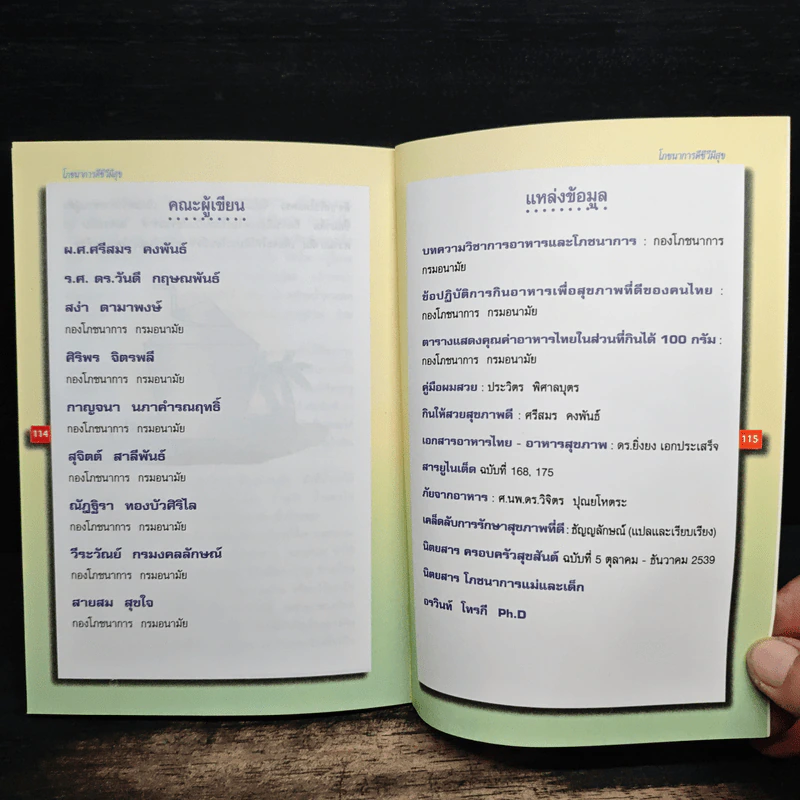 โภชนาการดีชีวีมีสุข
คณะผู้เขียน
ผ.ศ.ศรีสมร คงพันธ์
ร.ศ. ดร.วันดี กฤษณพันธ์
สง่า ดามาพงษ์
กองโภชนาการ กรมอนามัย
ศิริพร จิตรพลี
กองโภชนาการ กรมอนามัย
กาญจนา นภาคำรณฤทธิ์
กองโภชนาการ กรมอนามัย
สุจิตต์ สาลีพันธ์
กองโภชนาการ กรมอนามัย
ณัฎฐิรา ทองบัวศิริไล
กองโภชนาการ กรมอนามัย
วีระวัณย์ กรมงคลลักษณ์
กองโภชนาการ กรมอนามัย
สายสม สุขใจ
กองโภชนาการ กรมอนามัย
114
โภชนาการดีชีวีมีสุข
แหล่งข้อมูล
บทความวิชาการอาหารและโภชนาการ : กองโภชนาการ
กรมอนามัย
ข้อปฏิบัติการกินอาหารเพื่อสุขภาพที่ดีของคนไทย :
กองโภชนาการ กรมอนามัย
ตารางแสดงคุณค่าอาหารไทยในส่วนที่กินได้ 100 กรัม :
กองโภชนาการ กรมอนามัย
คู่มือผมสวย : ประวิตร พิศาลบุตร
กินให้สวยสุขภาพดี : ศรีสมร คงพันธ์
เอกสารอาหารไทย - อาหารสุขภาพ : ดร.ยิ่งยง เอกประเสร็จ
สารยูไนเต็ด ฉบับที่ 168, 175
ภัยจากอาหาร : ศ.นพ.ดร.วิจิตร ปุณยโหตระ
เคล็ดลับการรักษาสุขภาพที่ดี : ธัญญลักษณ์ (แปลและเรียบเรียง)
นิตยสาร ครอบครัวสุขสันต์ ฉบับที่ 5 ตุลาคม - ธันวาคม 2539
นิตยสาร โภชนาการแม่และเด็ก
อรวินท์ โทรกี Ph.D
115